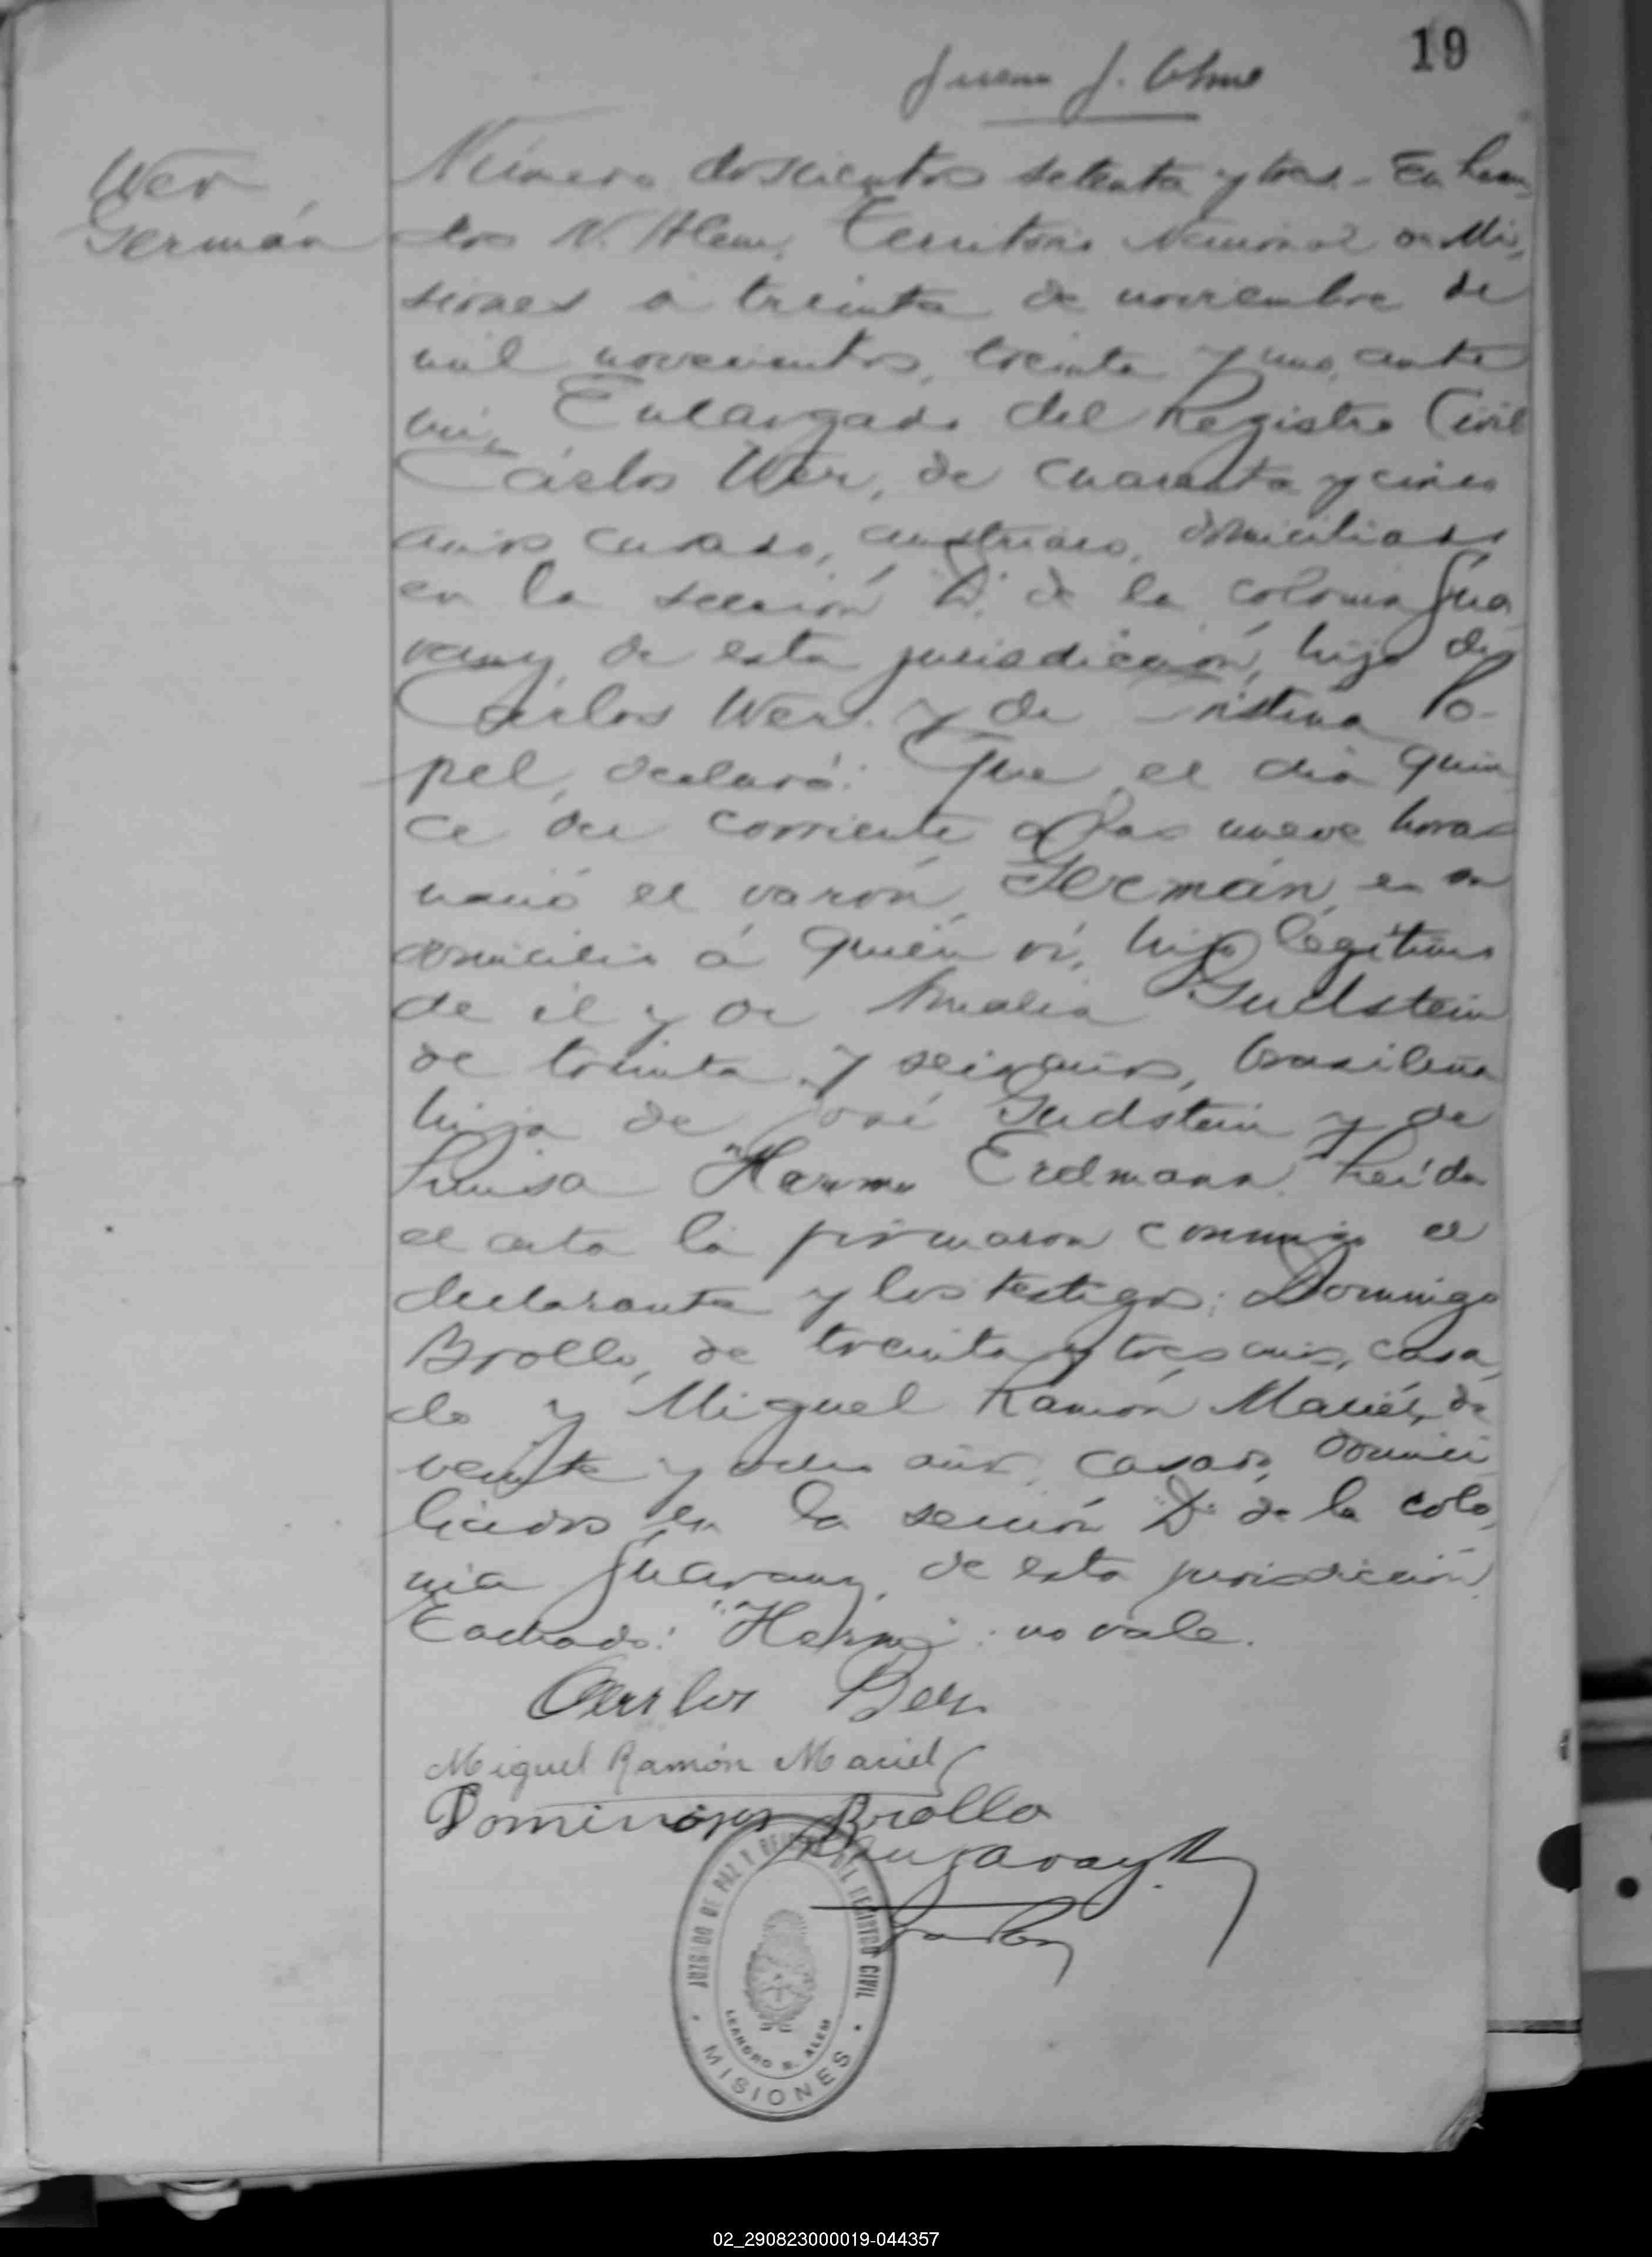 19
Juana J. Ohme
Wer
Germán
Número doscientos setenta y tres. - En Lean
dro N. Alem, Territorio Nacional de Mi
siones a treinta de noviembre de
mil novecientos, treinta y uno, ante
mí, Encargado del Registro Civil
Cárlos Wer, de cuarenta y cinco
años casado, austriaco, domiciliado
en la sección "D" de la colonia Gua
rany, de esta jurisdicción, hijo de
Cárlos Wer y de Cristina Po-
pel, declaró: Que el dia quin
ce del corriente a las nueve horas
nació el varón Germán, en su
domicilio á quién ví, hijo legítimo
de él y de Amalia Gudstein
de treinta y seis años, brasileña
hija de José Gudstein y de
Luisa "Herm" Erdmann. Leída
el acta la firmaron conmigo el
declarante y los testigos: Domingo
Brollo, de treinta y tres años, casa
do y Miguel Ramón Maciel, de
veinte y ocho años, casado, domici
liados en la sección "D" de la colo
nia Guarany, de esta jurisdicción.
Tachado: "Herm": no vale.
Carlos Ber
Miguel Ramón Maciel
Domingo Brollo
JUZGADO DE PAZ Y DEL REGISTRO CIVIL
LEANDRO N. ALEM
MISIONES
02_290823000019-044357